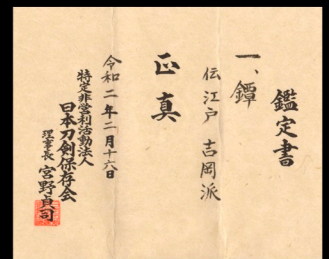 鑑定書
一、鐔
伝江戸 吉岡派
正真
令和二年二月十六日
特定非営利活動法人
日本刀剣保存会
理事長 宮野貞司